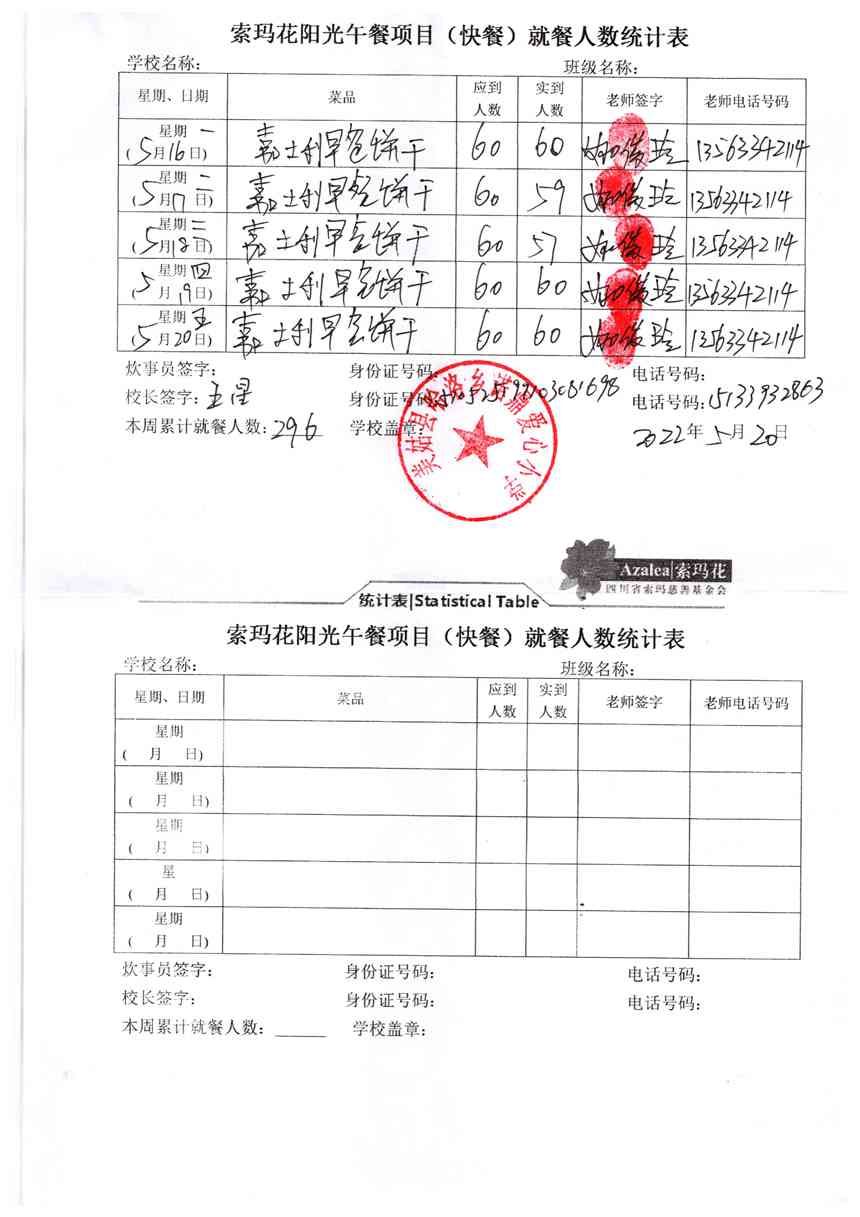 索玛花阳光午餐项目（快餐）就餐人数统计表
学校名称： 班级名称：
星期、日期 菜品 应到人数 实到人数 老师签字 老师电话号码
星期一 (5月16日) 嘉士利早餐饼干 60 60 俊玲 13563342114
星期二 (5月17日) 嘉士利早餐饼干 60 59 俊玲 13563342114
星期三 (5月18日) 嘉士利早餐饼干 60 57 俊玲 13563342114
星期四 (5月19日) 嘉士利早餐饼干 60 60 俊玲 13563342114
星期五 (5月20日) 嘉士利早餐饼干 60 60 俊玲 13563342114
炊事员签字： 身份证号码： 电话号码：
校长签字：王星 身份证号码： 电话号码：15133932863
本周累计就餐人数：296 学校盖章： 2022年5月20日
美姑县洛乡爱心小学
Azalea|索玛花
四川省索玛慈善基金会
统计表|Statistical Table
索玛花阳光午餐项目（快餐）就餐人数统计表
学校名称： 班级名称：
星期、日期 菜品 应到人数 实到人数 老师签字 老师电话号码
星期
( 月 日)
星期
( 月 日)
星期
( 月 日)
星
( 月 日)
星期
( 月 日)
炊事员签字： 身份证号码： 电话号码：
校长签字： 身份证号码： 电话号码：
本周累计就餐人数：______ 学校盖章：